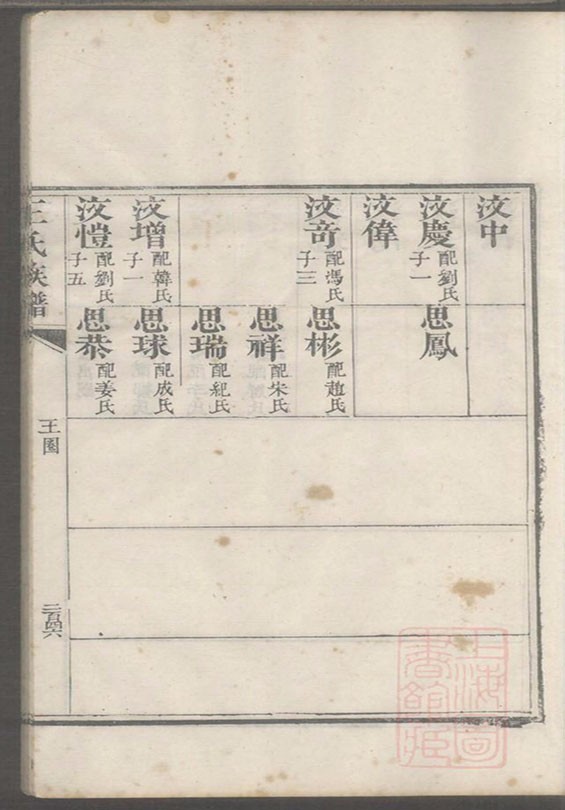 汶中
汶慶 配劉氏 子一
思鳳
汶偉
汶竒 配馮氏 子三
思彬 配趙氏
思祥 配朱氏
思瑞 配紀氏
汶增 配韓氏 子一
思球 配成氏
汶愷 配劉氏 子五
思恭 配姜氏
王氏族譜
王圈
二百四六
上海圖書館藏